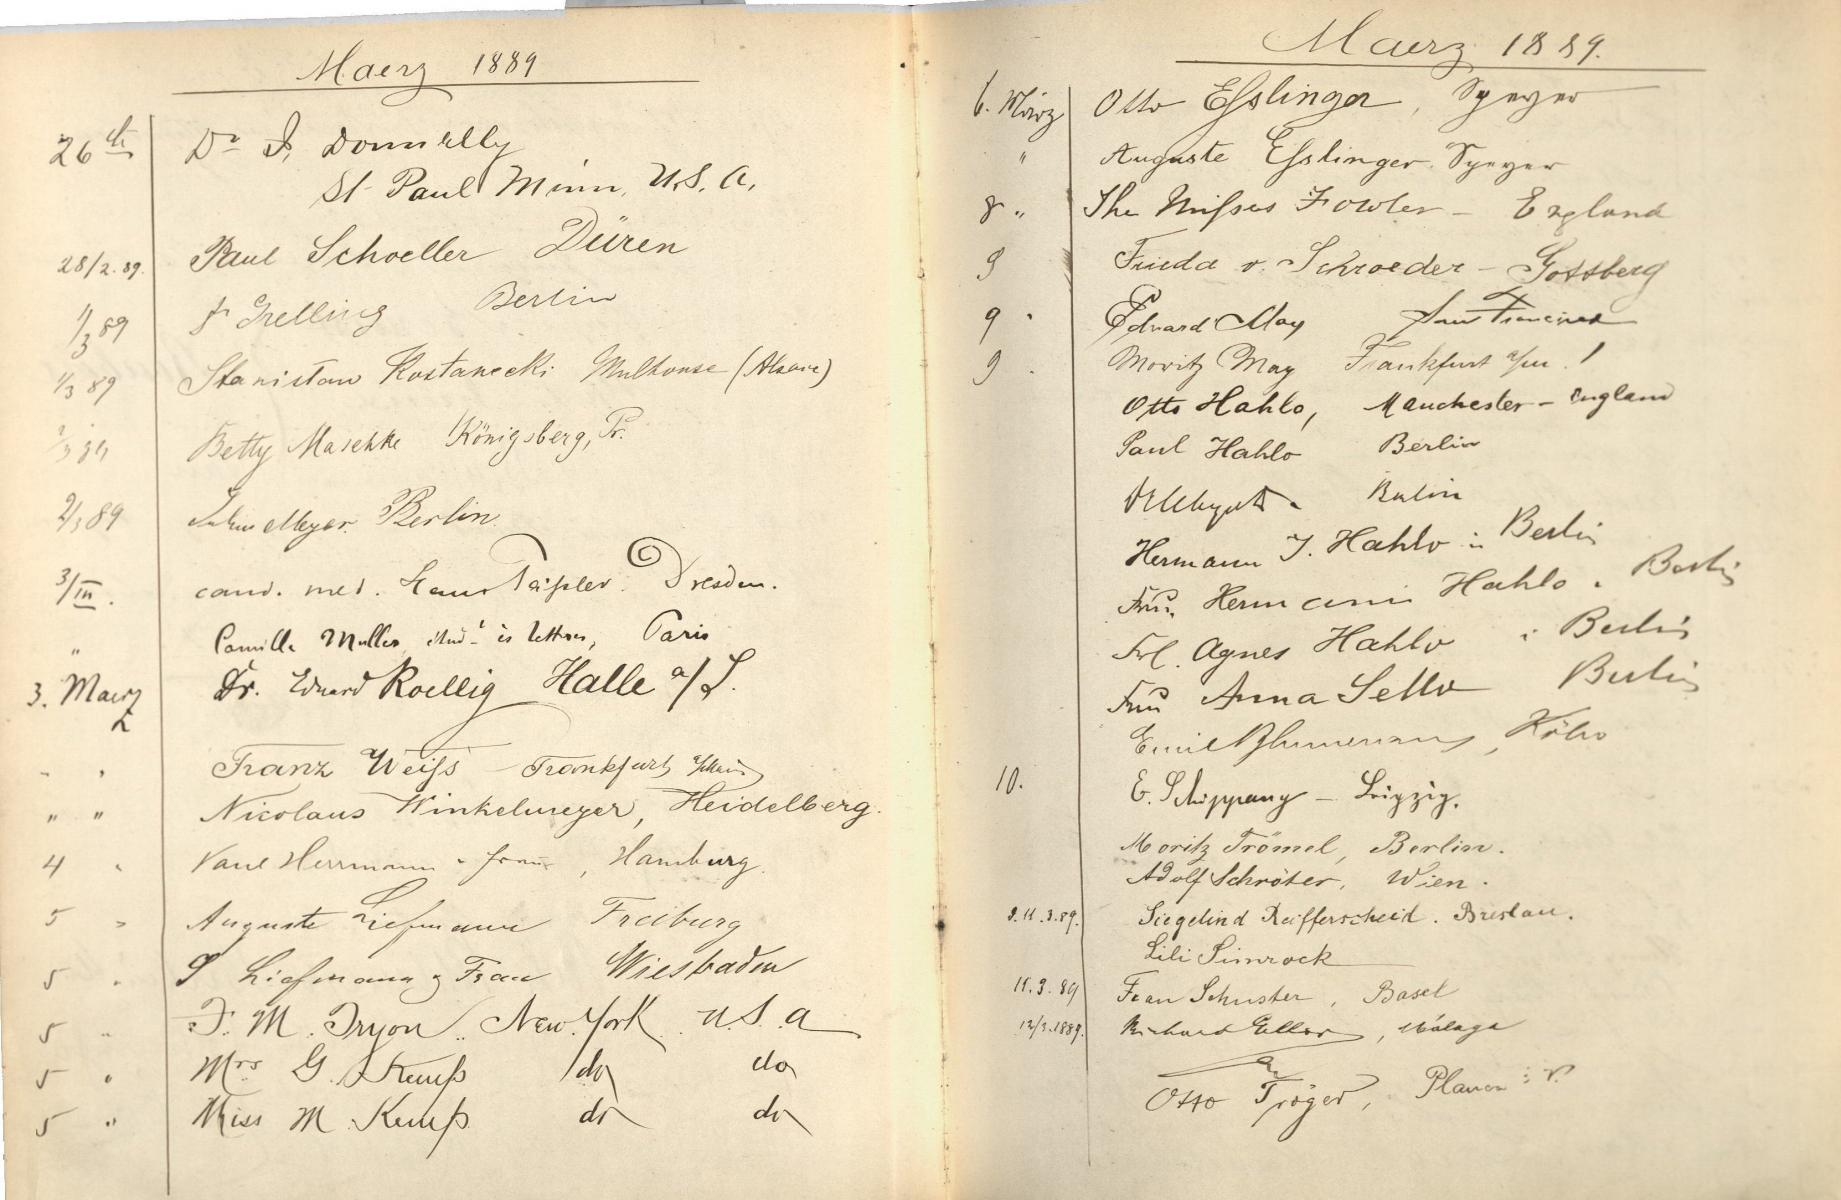 Maerz 1889
26th Dr I. Donnelly
St Paul Minn. U.S.A.
28/2.89. Paul Schoeller Düren
1/3 89 Grelling Berlin
1/3 89 Stanislaw Kostanecki Mulhouse (Alsace)
2/3 89 Betty Maschke Königsberg, Pr.
2/3 89 Julius Meyer. Berlin.
3/III. cand. med. Hans Dresden.
" Camille Muller, étudt ès lettres, Paris
3. Maerz Dr. Eduard Roellig Halle a/S.
" " Franz Weiſs – Frankfurt a/Main
" " Nicolaus Winkelmeyer, Heidelberg.
4 " Paul Herrmann u Frau, Hamburg.
5 " Auguste Liefmann Freiburg
5 " S Liefmann & Frau Wiesbaden
5 " F. M. Tryon. New York U.S.A
5 " Mrs G. Kemp do do
5 " Miss M. Kemp do do
Maerz 1889.
6. März Otto Eſslinger, Speyer
" Auguste Eſslinger. Speyer
8 " The Miſses Fowler – England
9 Frieda v. Schroeder – Gottberg
9 " Eduard May San Francisco
9 " Moritz May Frankfurt a/m. !
Otto Hahlo, Manchester – England
Paul Hahlo Berlin
Berlin
Hermann J. Hahlo in Berlin
Frau Hermann Hahlo " Berlin
Frl. Agnes Hahlo i Berlin
Frau Anna Sello Berlin
Emil Blumenau, Köln
10. E. Schippang – Leipzig.
Moritz Trömel, Berlin.
Adolf Schröter, Wien.
11.3.89. Siegelind Reifferscheid. Breslau.
Lili Simrock
11.3.89 Frau Schuster, Basel
12/3.1889. Richard, Málaga
Otto Tröger, Plauen i. V.